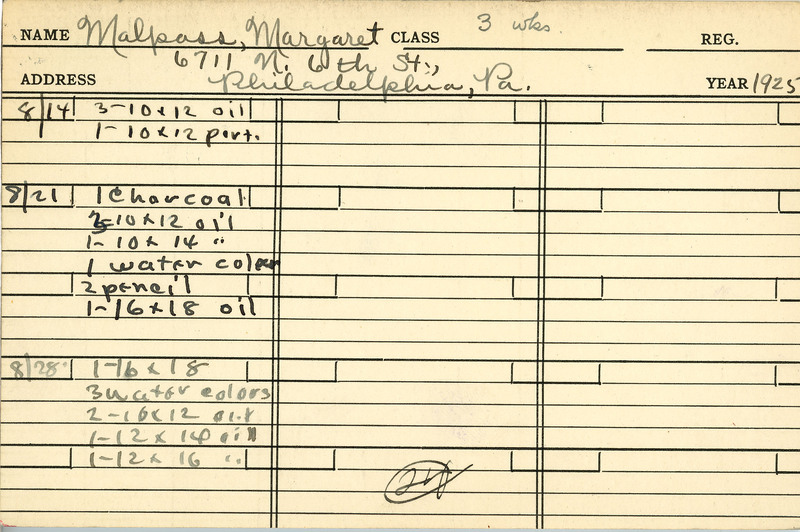 NAME Malpass, Margaret CLASS 3 wks. REG.
6711 N. 6th St.,
ADDRESS Philadelphia, Pa. YEAR 1925
8/14 3-10x12 oil
1-10x12 port.
8/21 1 Charcoal
10x12 oil
1-10x14 "
1 water color
2 pencil
1-16x18 oil
8/28 1-16x18
3 water colors
2-10x12 oil
1-12x14 oil
1-12x16 "